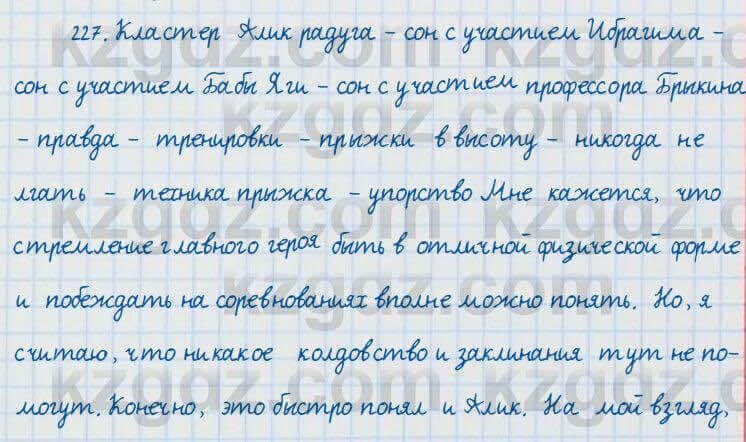 227. Кластер Алик радуга – сон с участием Ибрагима –
сон с участием Бабы Яги – сон с участием профессора Брыкина
– правда – тренировки – прыжки в высоту – никогда не
лгать – техника прыжка – упорство Мне кажется, что
стремление главного героя быть в отличной физической форме
и побеждать на соревнованиях вполне можно понять. Но, я
считаю, что никакое колдовство и заклинания тут не по-
могут. Конечно, это быстро понял и Алик. На мой взгляд,